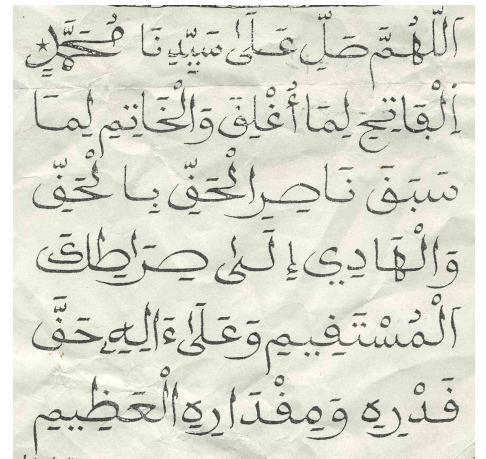 اَللَّهُمَّ صَلِّ عَلَىٰ سَيِّدِنَا مُحَمَّدٍ
اِلْفَاتِحِ لِمَا أُغْلِقَ وَالْخَاتِمِ لِمَا
سَبَقَ نَاصِرِ الْحَقِّ بِالْحَقِّ
وَالْهَادِي إِلَىٰ صِرَاطِكَ
اَلْمُسْتَقِيمِ وَعَلَىٰ ءَالِهِ حَقَّ
قَدْرِهِ وَمِقْدَارِهِ الْعَظِيمِ